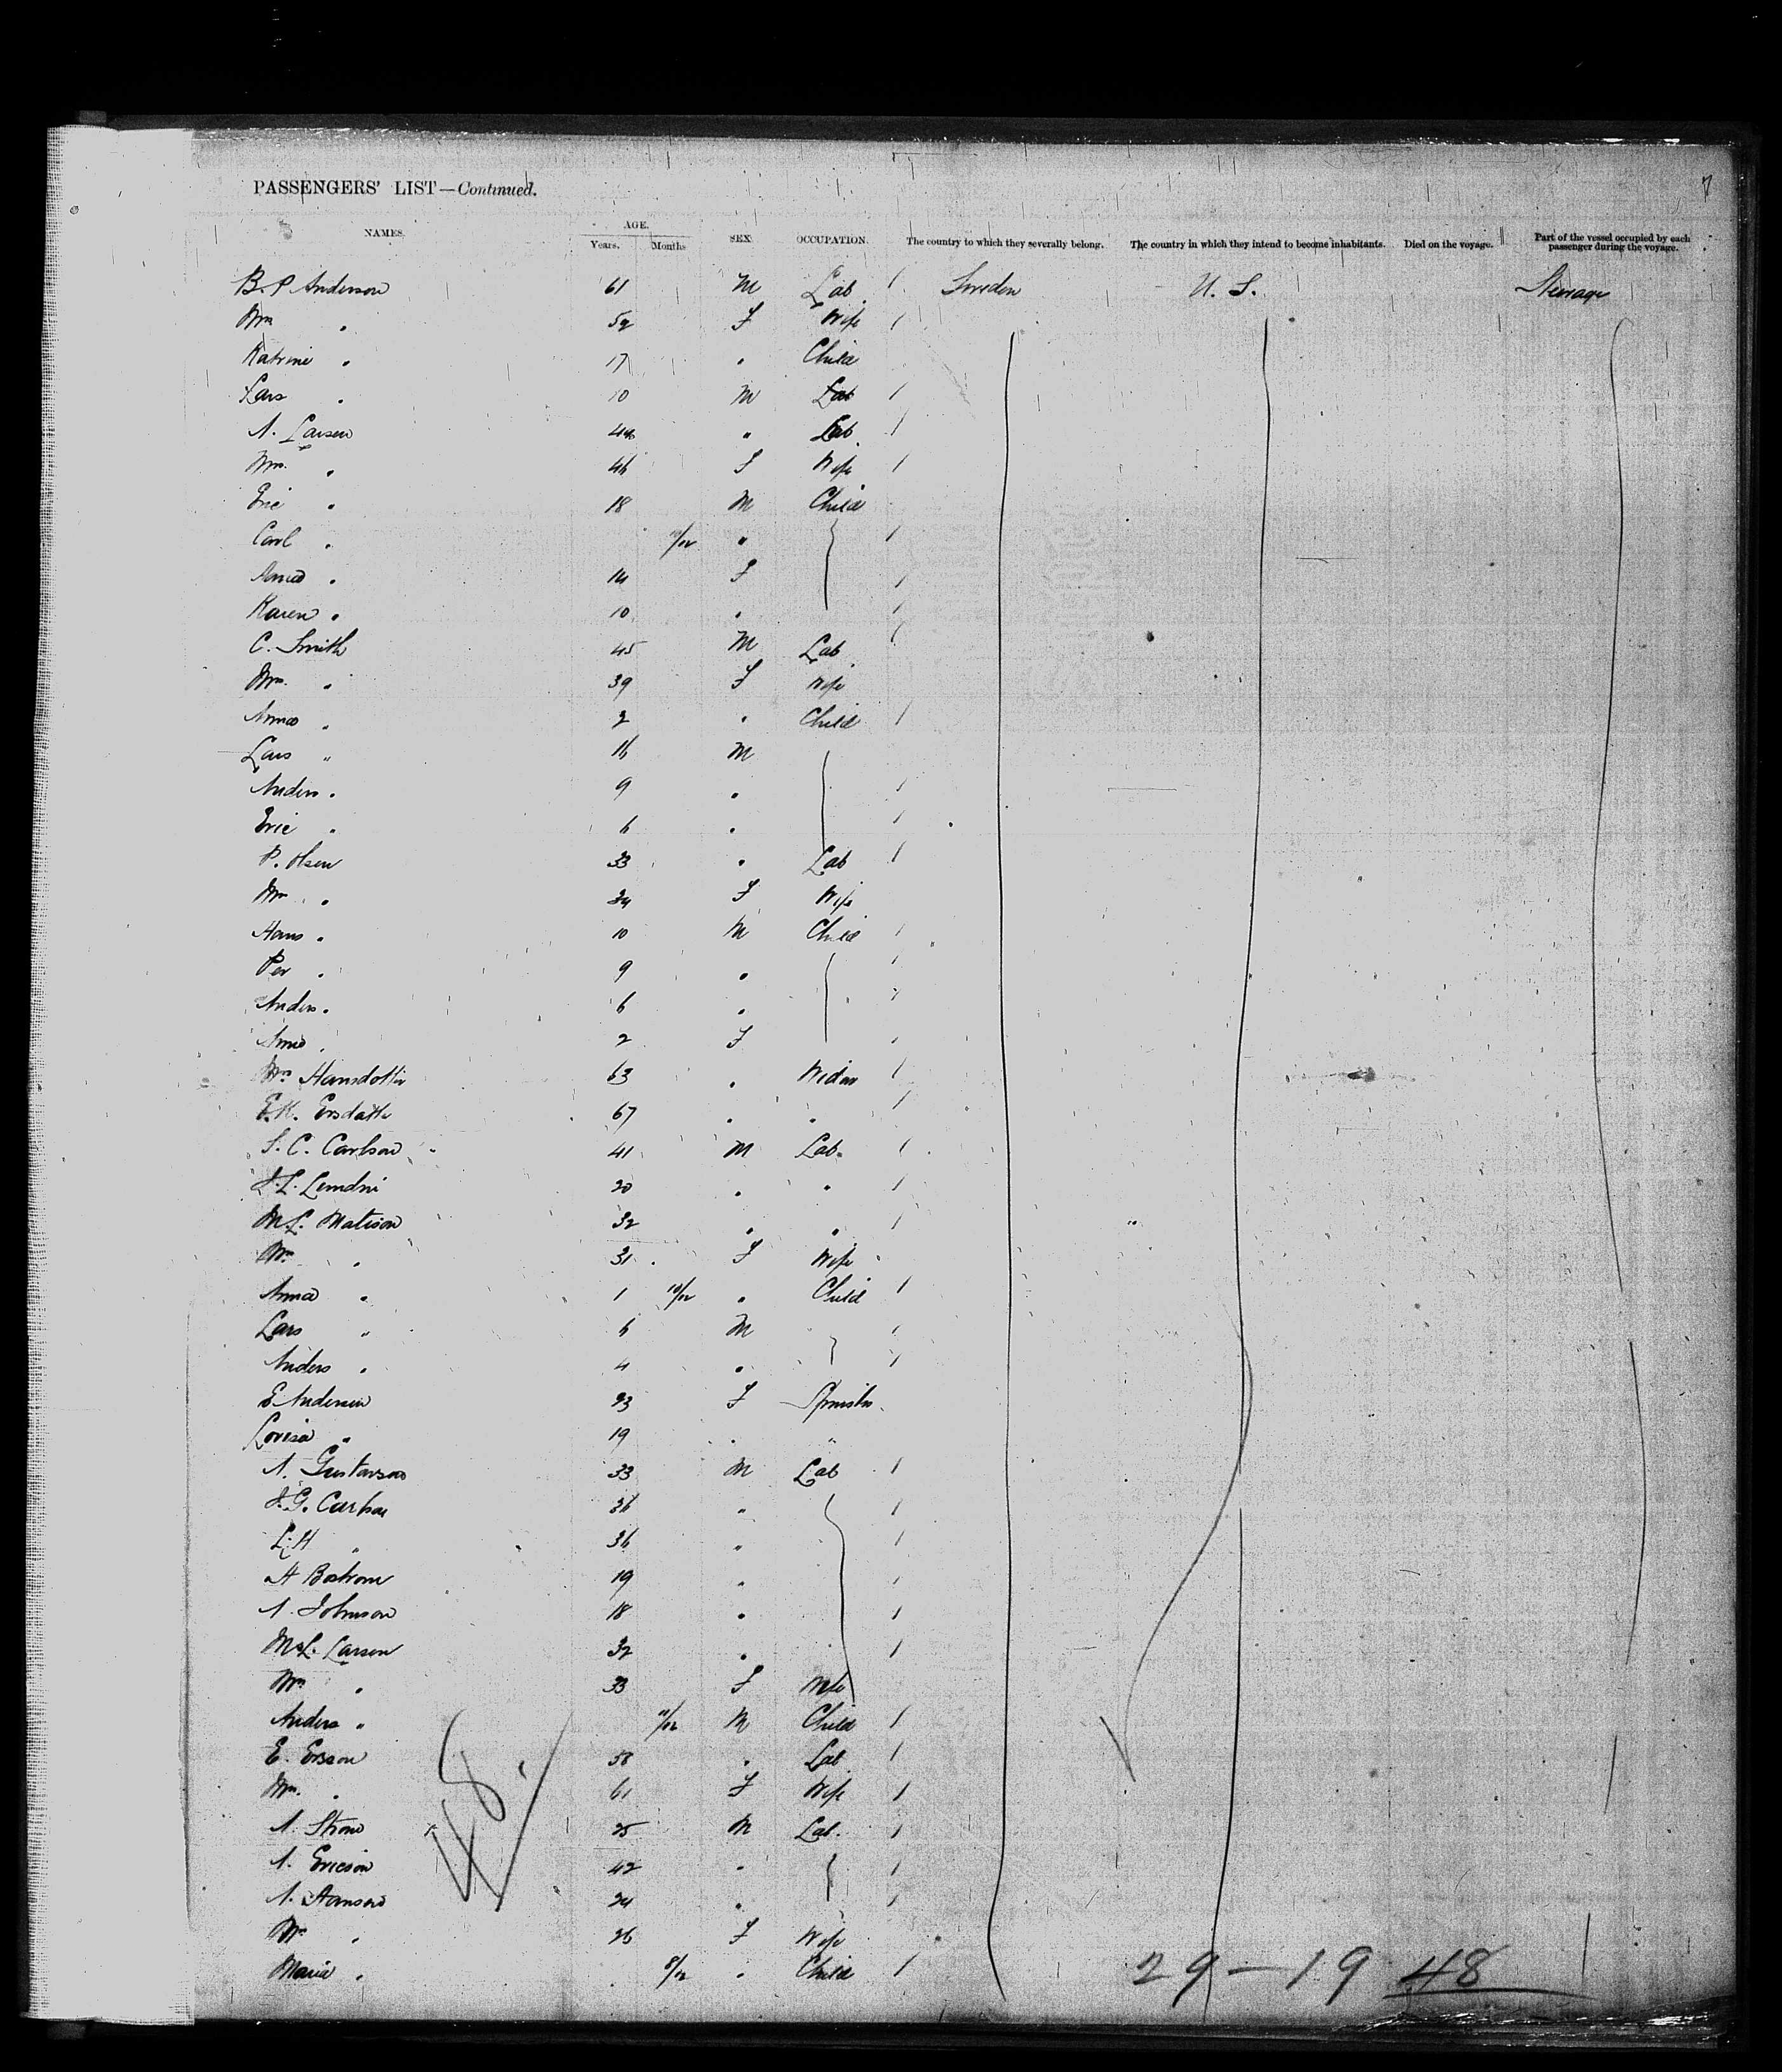 7
PASSENGERS' LIST—Continued.
NAMES. AGE. Years. Months SEX OCCUPATION. The country to which they severally belong. The country in which they intend to become inhabitants. Died on the voyage. Part of the vessel occupied by each passenger during the voyage.
B. P. Anderson 61 M Lab Sweden U. S. Steerage
Mrs " 52 F Wife
Katrine " 17 " Child
Lars " 10 M Lab
A. Larsen 44 " Lab
Mrs. " 46 F Wife
Eric " 18 M Child
Carl " "
Anna " 14 F
Karen " 10 "
C. Smith 45 M Lab
Mrs. " 39 F Wife
Anna " 2 " Child
Lars " 16 M
Anders " 9 "
Eric " 6 "
P. Olsen 33 " Lab
Mrs " 34 F Wife
Hans " 10 M Child
Per " 9 "
Anders " 6 "
Anna " 2 F
Mrs Hansdotter 63 " Widow
E. K. Ersdatter 67 " "
S. C. Carlson 41 M Lab.
L. Lemdni 20 " "
M. L. Matison 32 " "
Mrs " 31 F Wife
Anna " 1 10/12 " Child
Lars " 6 M
Anders " 4 "
E Andersen 23 F Spinster
Lovisa " 19 " "
A. Gustavson 33 M Lab
J. G. Carlson 36 "
L. H " 36 "
A Bostrom 19 "
A. Johnson 18 "
M. L. Larsen 32 "
Mrs " 33 F Wife
Anders " 11/12 M Child
E. Ersson 58 " Lab
Mrs. " 61 F Wife
A. Strom 25 M Lab.
A. Ericson 42 "
A. Hanson 24 "
Mrs " 26 F Wife
Maria " 8/12 " Child
48.
29—19 48